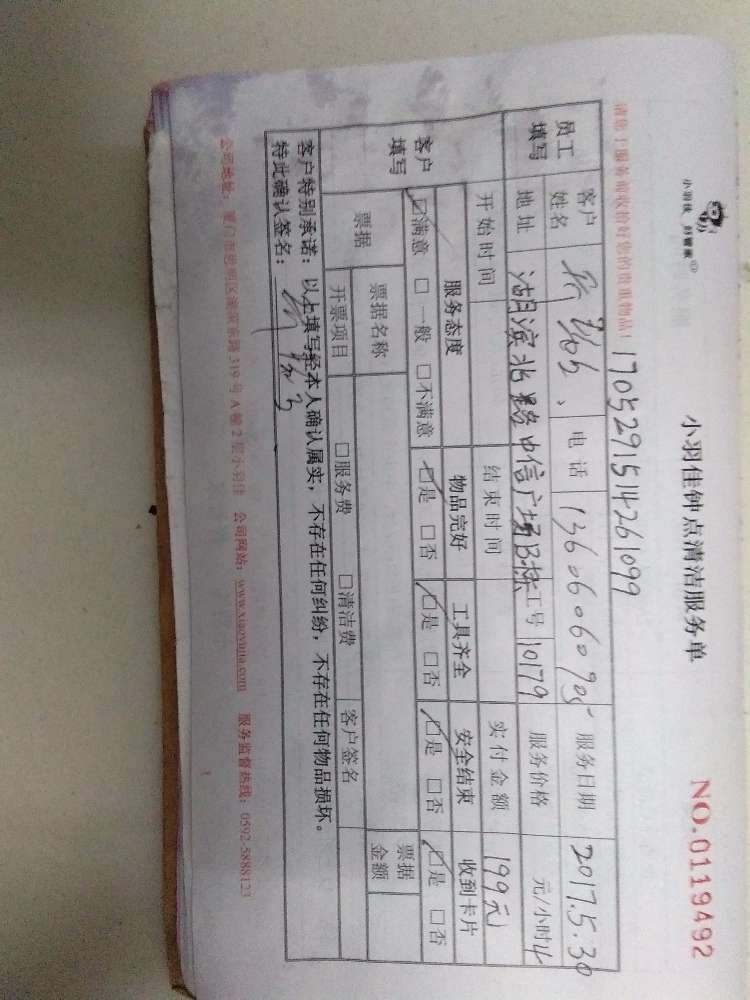 小羽佳钟点清洁服务单
NO.0119492
小羽佳 好管家
请您于服务前收拾好您的贵重物品！
1705291514261099
员工填写
客户姓名 电话 13606060905 服务日期 2017.5.30
地址 湖滨北路中信广场B栋 工号 10179 服务价格 元/小时 4
开始时间 结束时间 实付金额 199元
客户填写
服务态度 物品完好 工具齐全 安全结束 收到卡片
☑满意 □一般 □不满意 ☑是 □否 ☑是 □否 ☑是 □否 ☑是 □否
票据 票据名称 票据金额
开票项目 □服务费 □清洁费 客户签名
客户特别承诺：以上填写经本人确认属实，不存在任何纠纷，不存在任何物品损坏。
特此确认签名：
公司地址：厦门市思明区 东路319号A幢2层小羽佳 公司网站：www.xiaoyujia.com 服务监督热线：0592-5888123